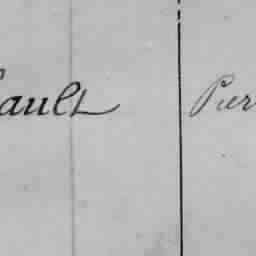 ault Pier